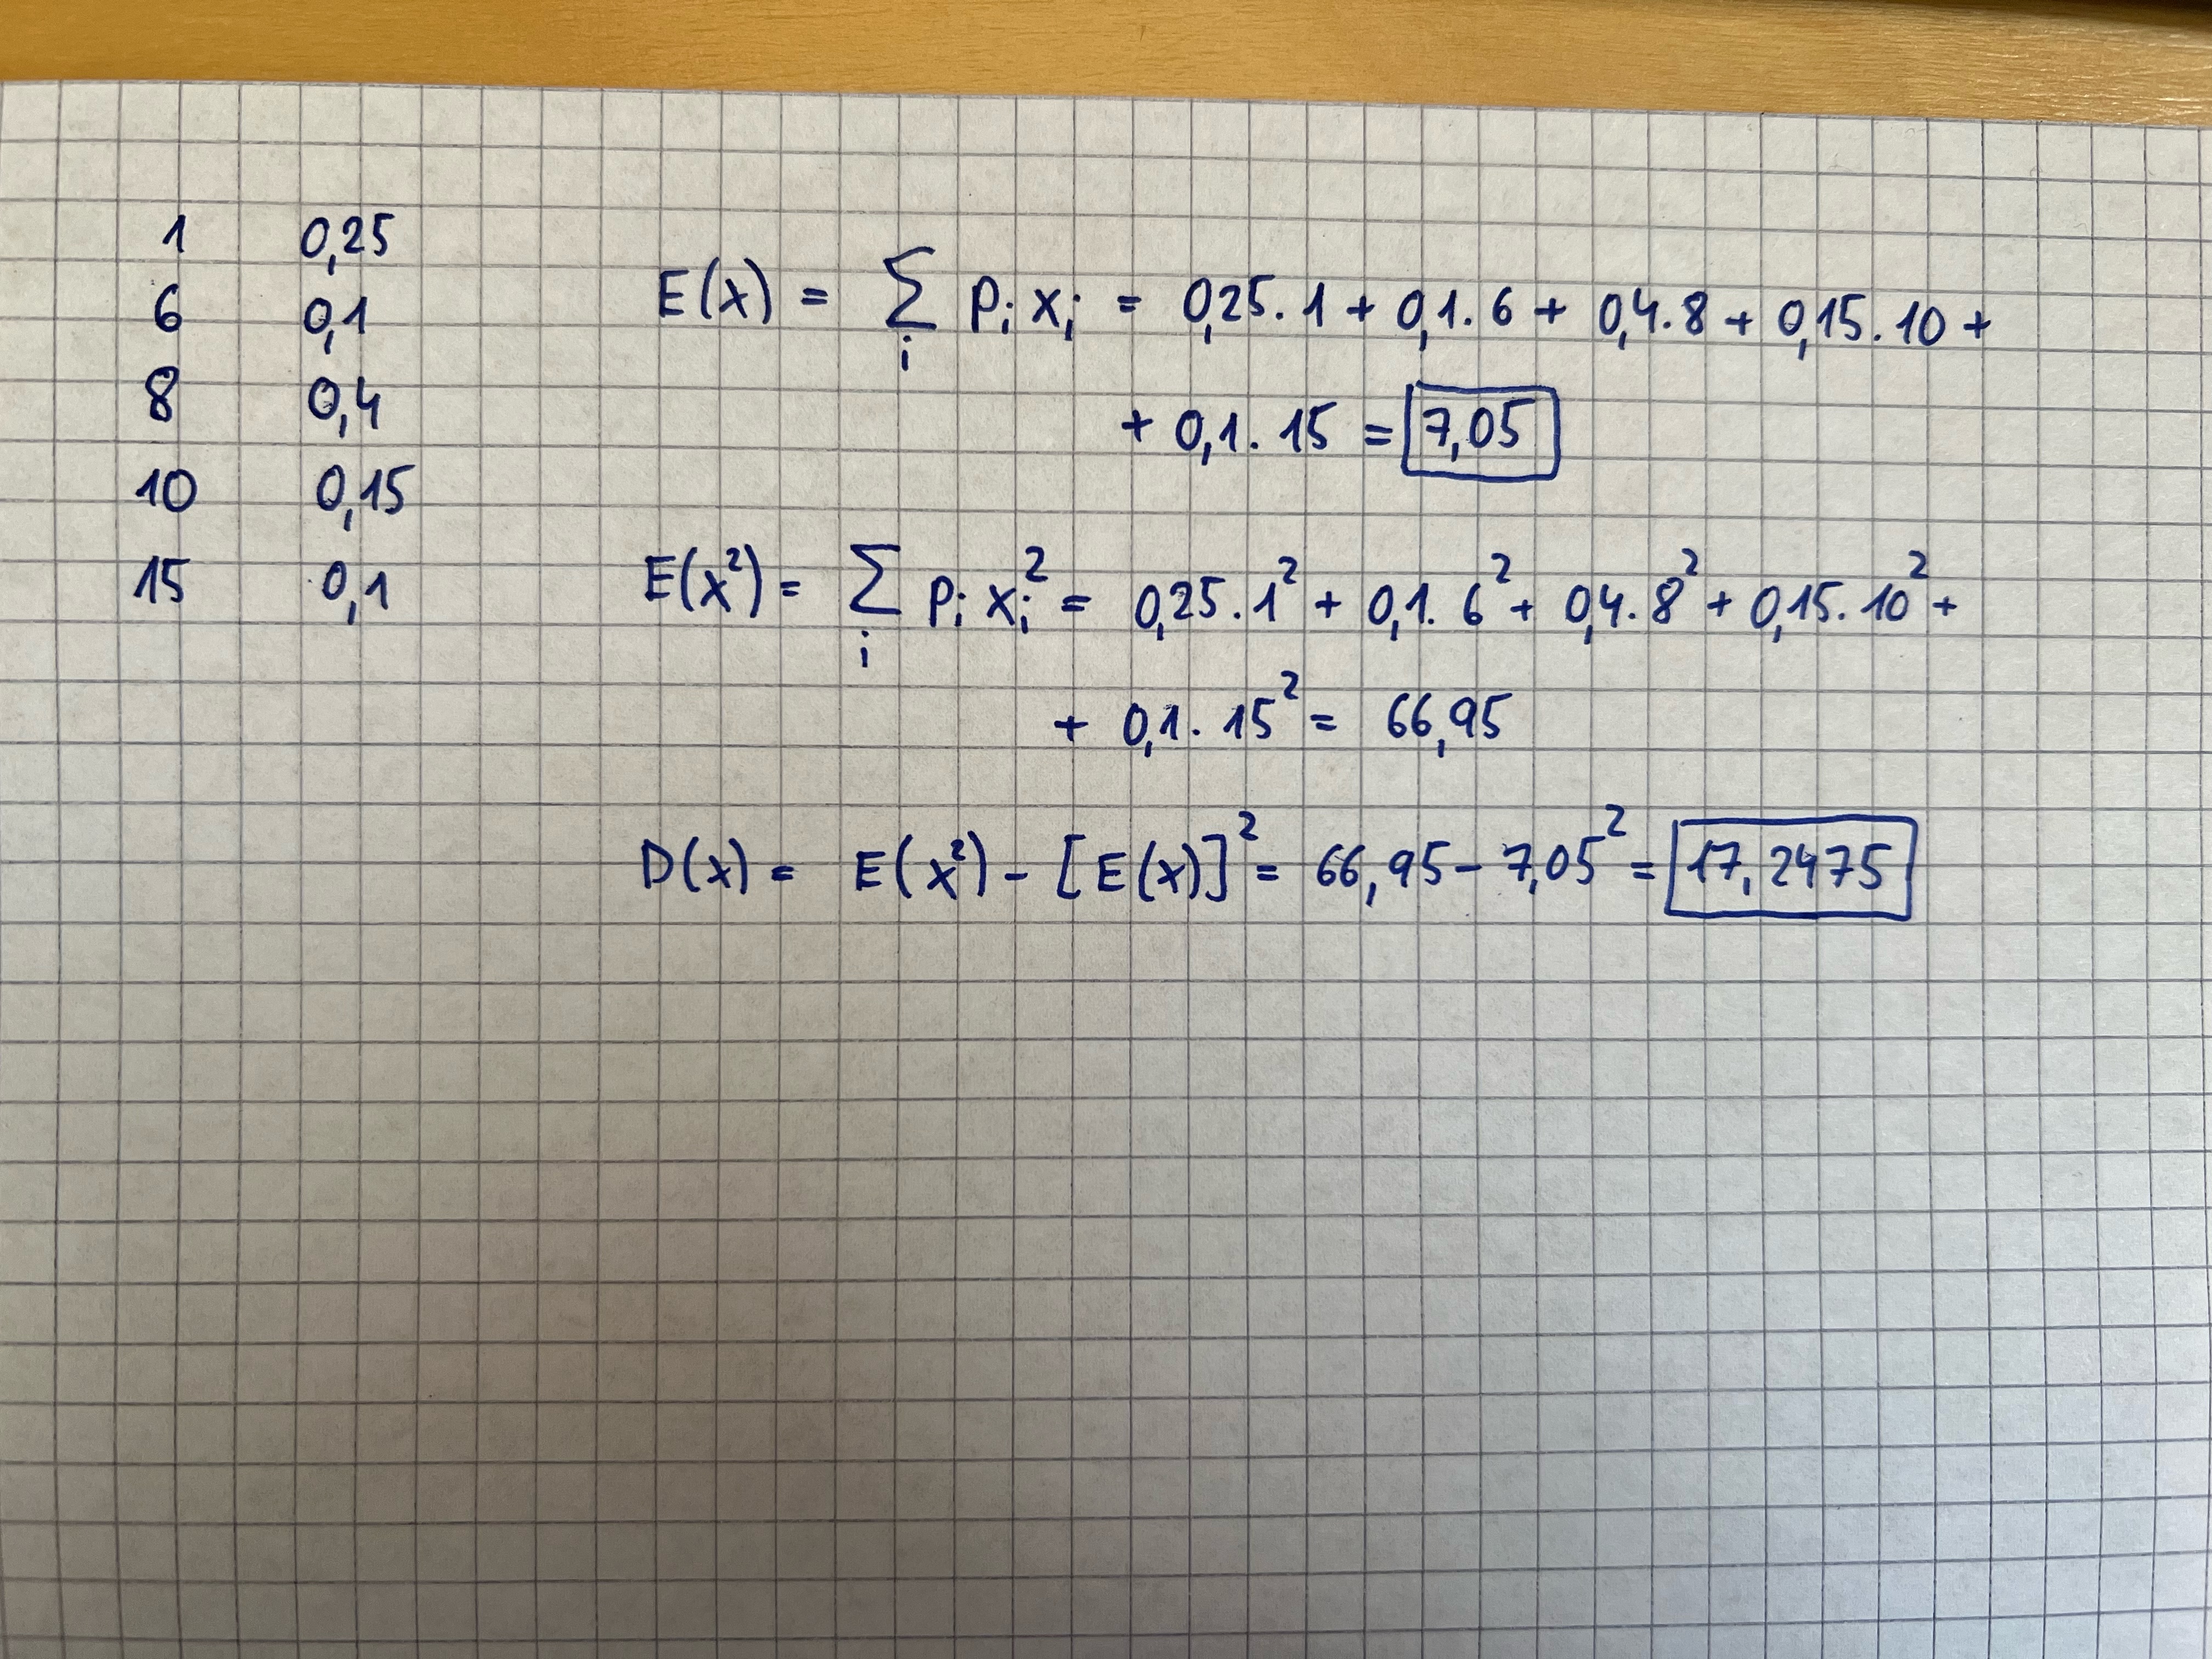 1 0,25
6 0,1
8 0,4
10 0,15
15 0,1
E(x) = ∑ᵢ pᵢ xᵢ = 0,25 . 1 + 0,1 . 6 + 0,4 . 8 + 0,15 . 10 +
+ 0,1 . 15 = 7,05
E(x²) = ∑ᵢ pᵢ xᵢ² = 0,25 . 1² + 0,1 . 6² + 0,4 . 8² + 0,15 . 10² +
+ 0,1 . 15² = 66,95
D(x) = E(x²) - [E(x)]² = 66,95 - 7,05² = 17,2475